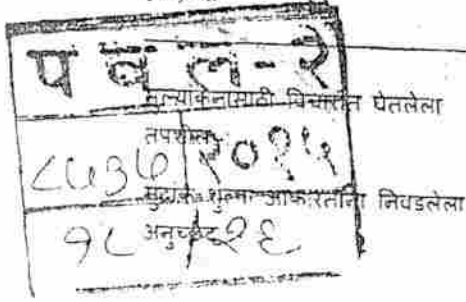 पवल-२
मूल्यांकनासाठी विचारात घेतलेला
तपशील
८५३७ २०१५
मुद्रांक शुल्क आकारतांना निवडलेला
अनुच्छेद
१८ २६